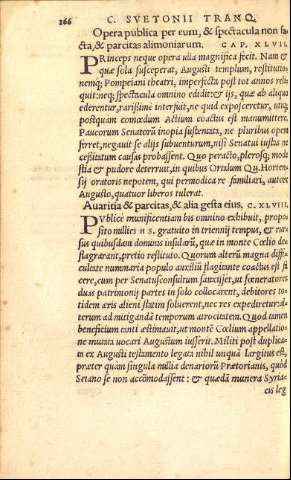 266 C. SVETONII TRANQ.
Opera publica per eum, & spectacula non fa
cta, & parcitas alimoniarum. CAP. XLVII.
PRinceps neque opera ulla magnifica fecit. Nam &
quæ sola susceperat, Augusti templum, restitutio
nemq; Pompeiani theatri, imperfecta post tot annos reli
quit: neq; spectacula omnino edidit: & ijs, quæ ab aliquo
ederentur, rarissime interfuit, ne quid exposceretur, utiq;
postquam comœdum Actium coactus est manumittere.
Paucorum Senatorū inopia sustentata, ne pluribus opem
ferret, negavit se alijs subventurum, nisi Senatui iustas ne
ceßitatum causas probassent. Quo pacto, plerosq; mode
stia & pudore deterruit, in quibus Ortalum Qu. Horten-
sij oratoris nepotem, qui permodica re familiari, autore
Augusto, quatuor liberos tulerat.
Avaritia & parcitas, & alia gesta eius. C. XLVIII.
PVblice munificentiam bis omnino exhibuit, propo
sito millies n s. gratuito in triennij tempus, & rur-
sus quibusdam dominis insularū, quæ in monte Cœlio de
flagrarant, pretio restituto. Quorum alterū magna diffi-
cultate nummaria populo auxiliū flagitante coactus est fa
cere, cum per Senatusconsultum sanxisset, ut fœneratores
duas patrimonij partes in solo collocarent, debitores to-
tidem æris alieni statim solverent, nec res expediretur: al-
terum ad mitigandā temporum atrocitatem. Quod tamen
beneficium tanti æstimavit, ut montē Cœlium appellatio-
ne mutata vocari Augustum iusserit. Militi post duplica-
ta ex Augusti testamento legata nihil unquā largitus est,
præter quàm singula millia denariorū Prætorianis, quòd
Seiano se non accōmodassent: & quædā munera Syria-
cis leg